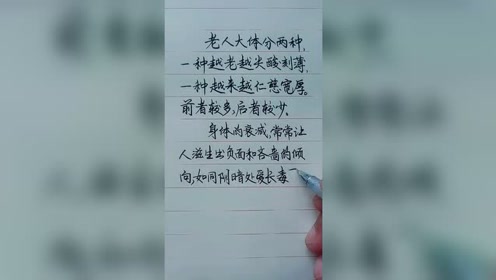 老人大体分两种,
一种越老越尖酸刻薄,
一种越来越仁慈宽厚。
前者较多,后者较少。
身体的衰减,常常让
人滋生出负面和吝啬的倾
向,如同阴暗处爱长毒